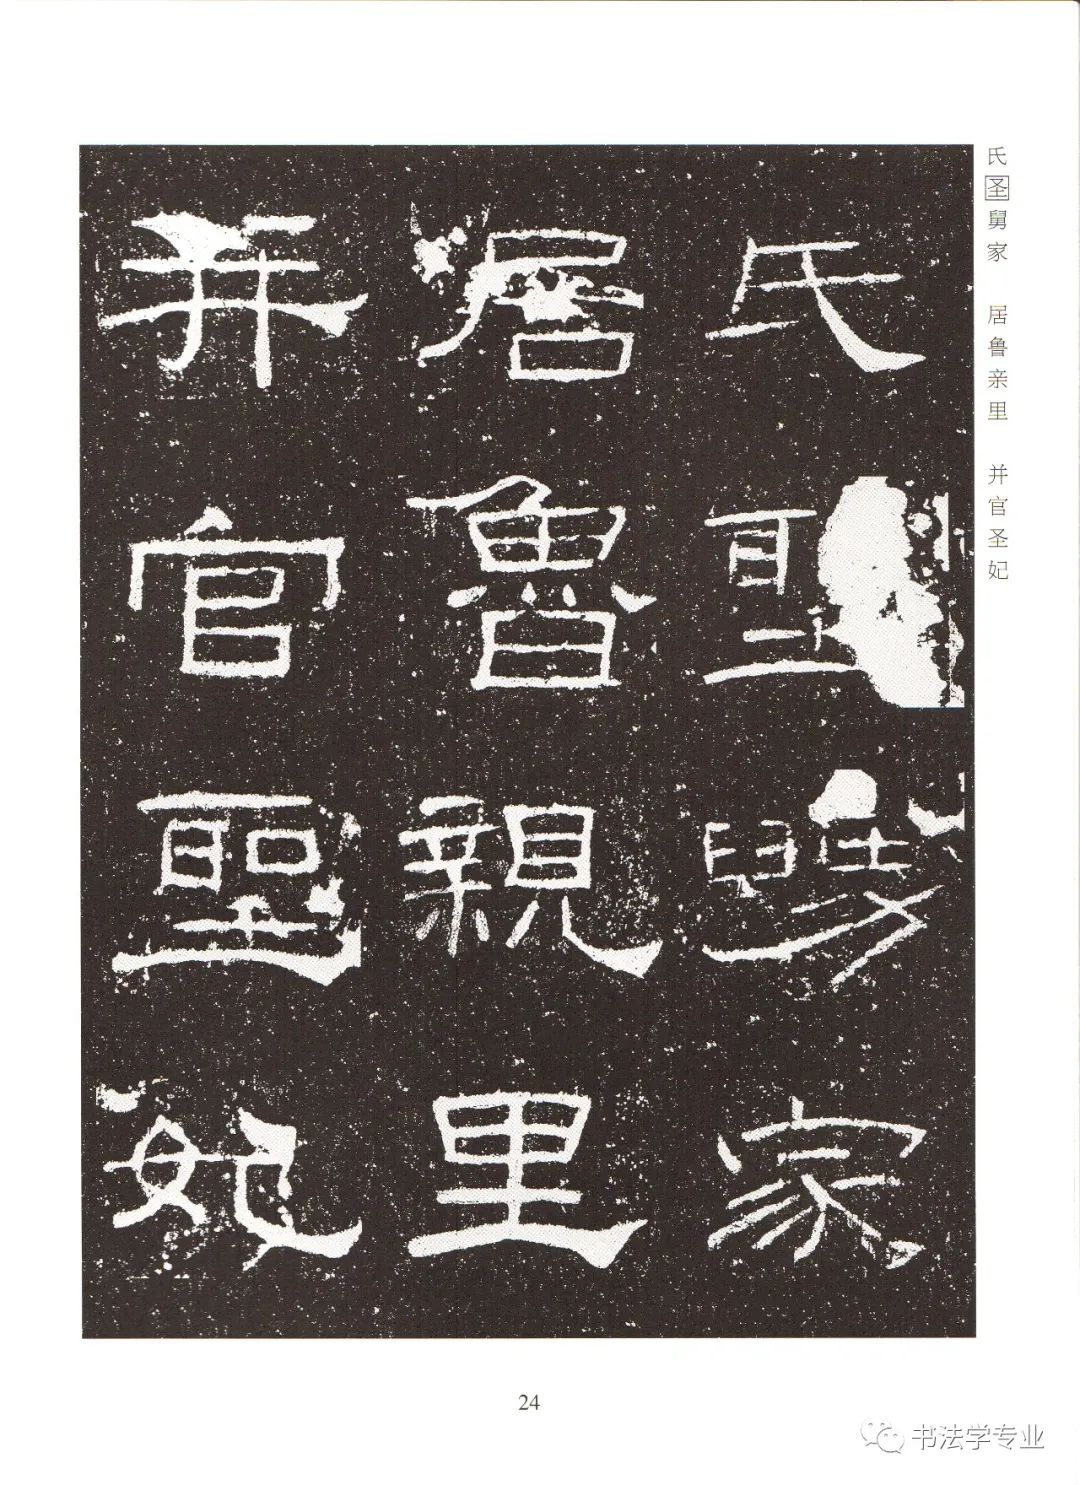 氏圣舅家　居鲁亲里　并官圣妃
氏聖舅家
居魯親里
并官聖妃
24
书法学专业